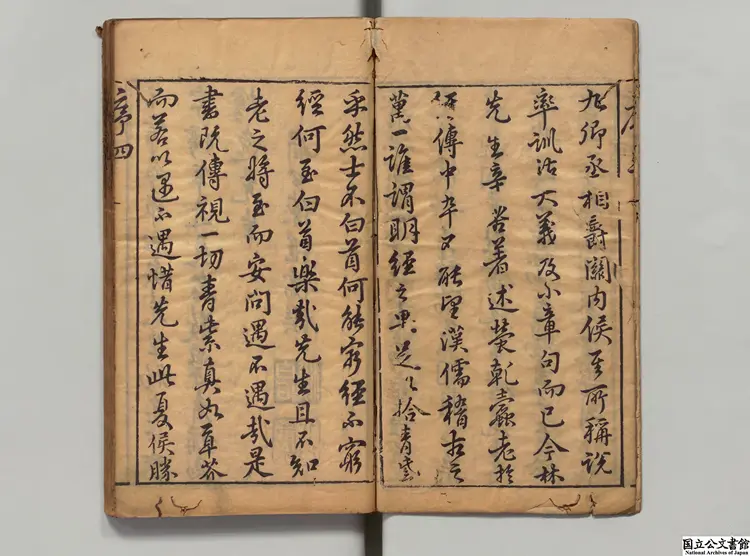 九卿丞相爵關內侯至所稱說
率訓詁大義及小章句而已今林
先生辛苦著述螢乾蠹老於
傳中卒不能望漢儒稽古之
萬一誰謂明經之果足以拾青紫
乎然士不白首何能窮經不窮
經何至白首樂哉先生且不知
老之將至而安問遇不遇哉是
書既傳視一切青紫真如草芥
而若以遇不遇惜先生此夏侯勝
序四
国立公文書館
National Archives of Japan